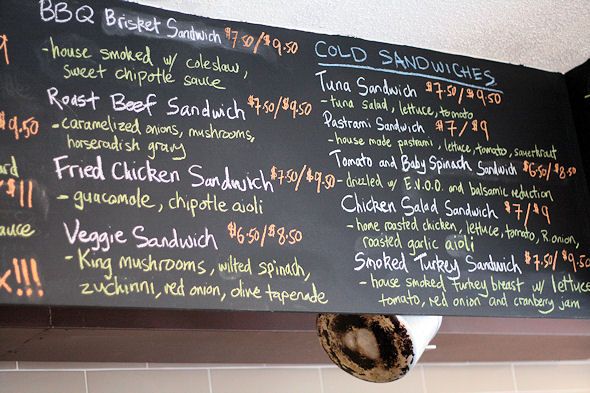 9
9.50
ard
$11
auce
x!!!
BBQ Brisket Sandwich $7.50/$9.50
-house smoked w/ coleslaw,
sweet chipotle sauce
Roast Beef Sandwich $7.50/$9.50
-caramelized onions, mushrooms,
horseradish gravy
Fried Chicken Sandwich $7.50/$9.50
-guacamole, chipotle aioli
Veggie Sandwich $6.50/$8.50
-King mushrooms, wilted spinach,
zuchinni, red onion, olive tapenade
COLD SANDWICHES
Tuna Sandwich $7.50/$9.50
-tuna salad, lettuce, tomato
Pastrami Sandwich $7/$9
-house made pastrami, lettuce, tomato, sauerkraut
Tomato and Baby Spinach Sandwich $6.50/$8.50
-drizzled w/ E.V.O.O. and balsamic reduction
Chicken Salad Sandwich $7/$9
-home roasted chicken, lettuce, tomato, R.onion,
roasted garlic aioli
Smoked Turkey Sandwich $7.50/$9.50
-house smoked turkey breast w/ lettuce
tomato, red onion and cranberry jam